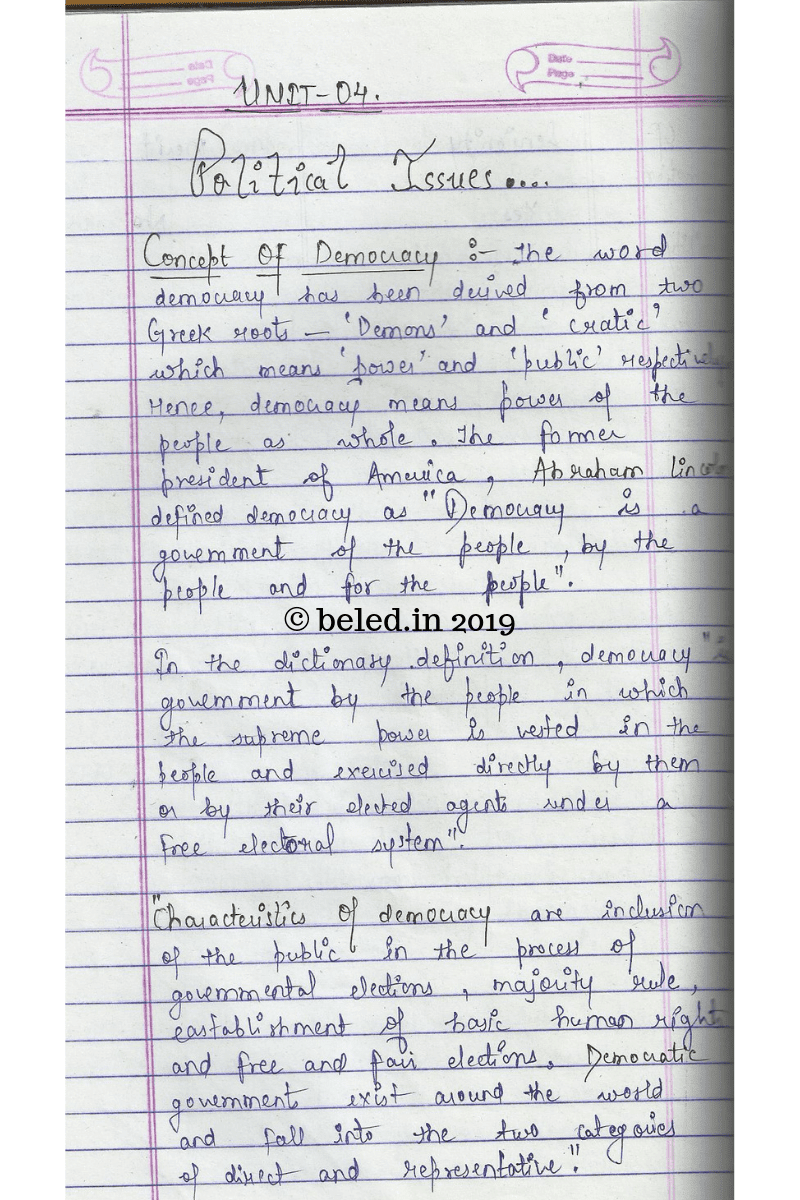 Date
Page
UNIT-04.
Political Issues....
Concept Of Democracy :- The word
democracy has been derived from two
Greek roots — 'Demons' and 'cratic'
which means 'power' and 'public' respectively
Hence, democracy means power of the
people as whole. The former
president of America, Abraham Lincoln
defined democracy as "Democracy is a
government of the people, by the
people and for the people".
© beled.in 2019
In the dictionary definition, democracy "is
government by the people in which
the supreme power is vested in the
people and exercised directly by them
or by their elected agents under a
free electoral system".
"Characteristics of democracy are inclusion
of the public in the process of
governmental elections, majority rule,
eastablishment of basic human right
and free and fair elections. Democratic
government exist around the world
and fall into the two categories
of direct and representative."